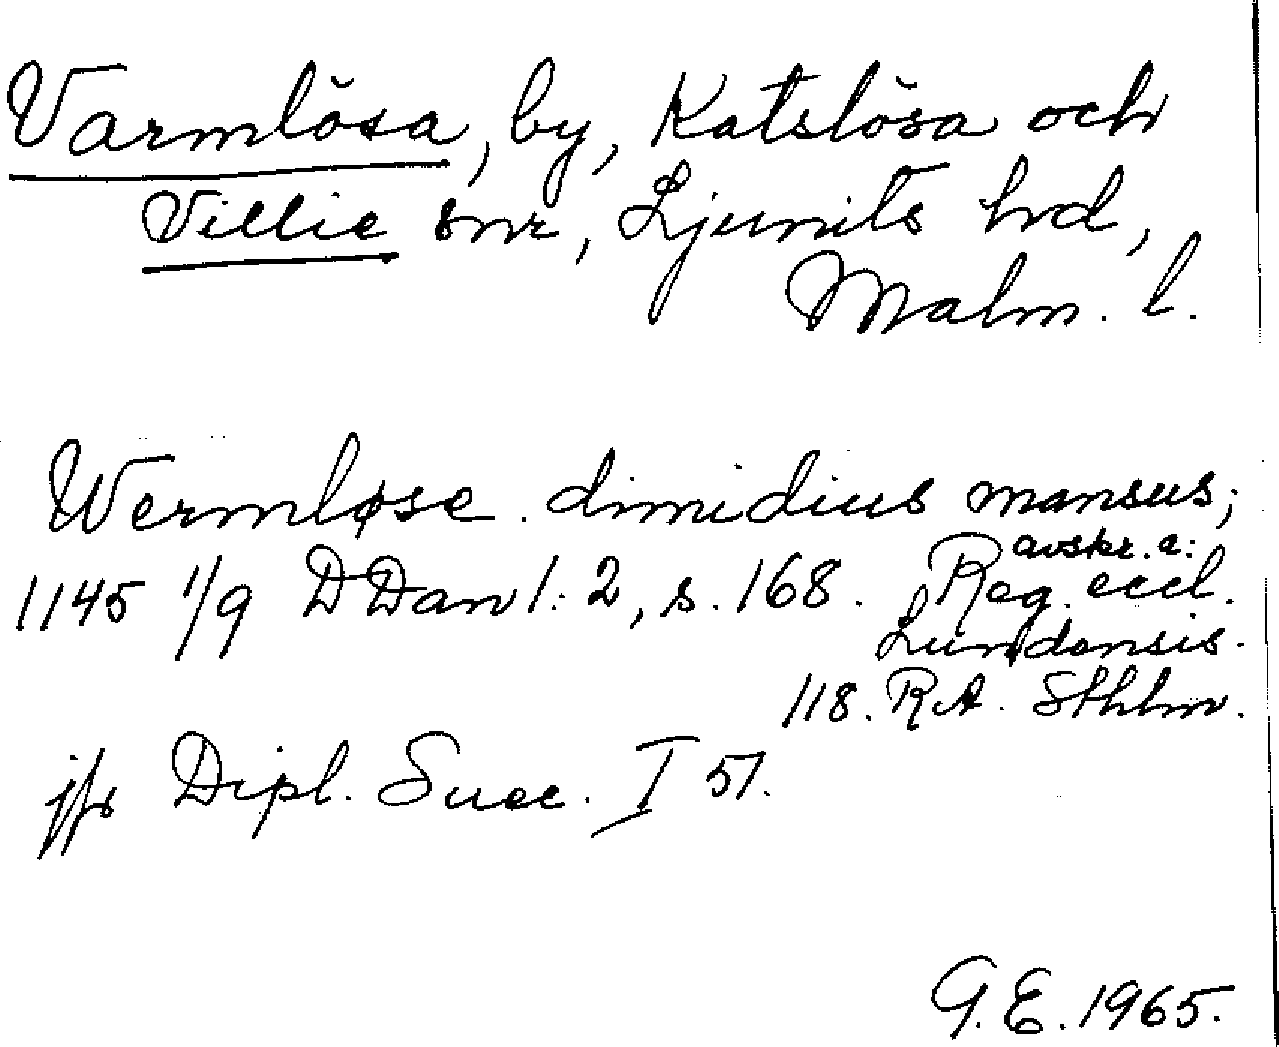 Varmlösa, by, Katslösa och
Villie snr, Ljunits hrd,
Malm. l.
Wermløse. dimidius mansus;
avskr. e:
1145 1/9 DDan 1:2, s. 168. Reg. eccl.
Lundensis.
118. RA. Sthlm.
jfr Dipl. Suec. I 51.
G.E. 1965.